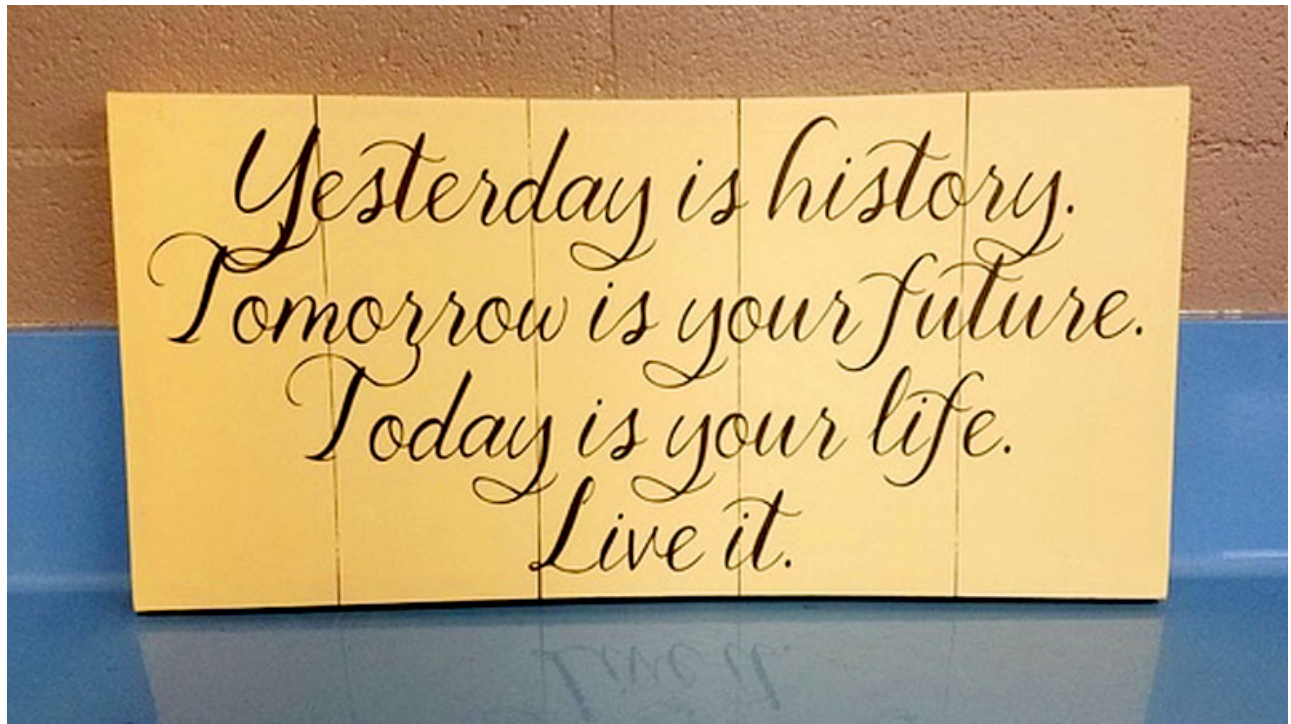 Yesterday is history.
Tomorrow is your future.
Today is your life.
Live it.